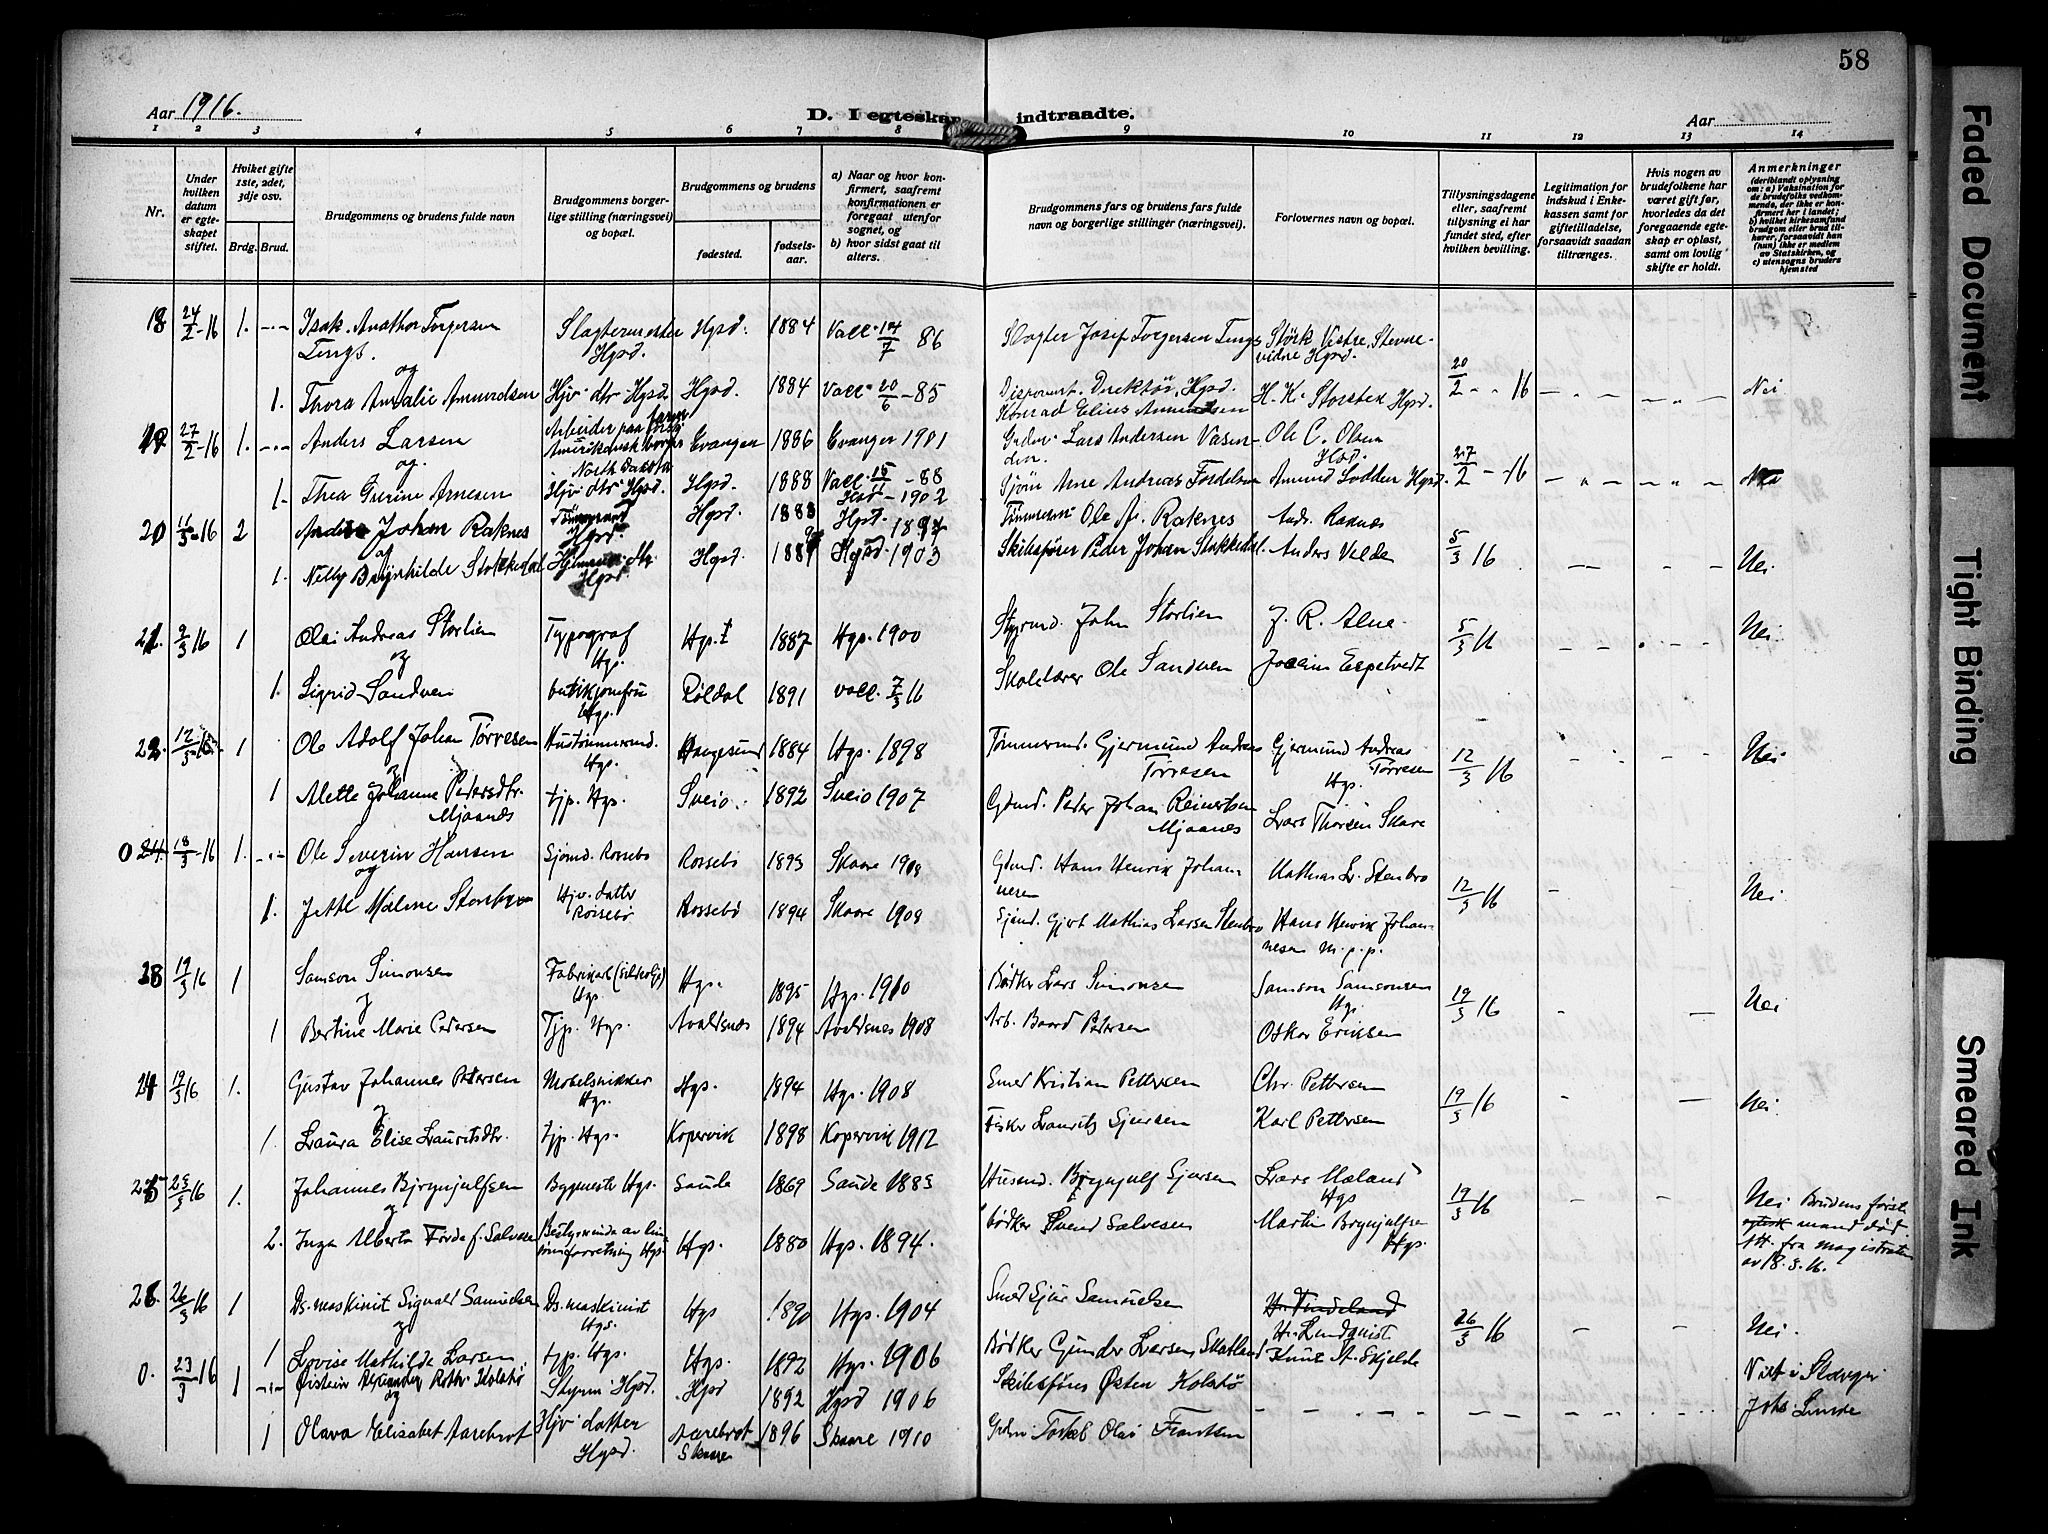 58
Aar 1916.
D. I egteskap indtraadte.
Aar
1 2 3 4 5 6 7 8 9 10 11 12 13 14
Nr.
Under hvilken datum er egteskapet stiftet.
Hvilket gifte 1ste, 2det, 3dje osv.
Brdg. Brud.
Brudgommens og brudens fulde navn
Brudgommens borgerlige stilling (næringsvei) og bopæl.
Brudgommens og brudens
fødested.
fødselsaar.
a) Naar og hvor konfirmert, saafremt konfirmationen er foregaat utenfor sognet, og
b) hvor sidst gaat til alters.
Brudgommens fars og brudens fars fulde navn og borgerlige stillinger (næringsvei).
Forlovernes navn og bopæl.
Tillysningsdagene eller, saafremt tillysning ei har fundet sted, efter hvilken bevilling.
Legitimation for indskud i Enkekassen samt for giftetilladelse, forsaavidt saadan tiltrænges.
Hvis nogen av brudefolkene har været gift før, hvorledes da det foregaaende egteskap er opløst, samt om lovlig skifte er holdt.
Anmerkninger
(deriblandt oplysning om: a) Vaksination for de brudefolks vedkommende, der ikke er konfirmert her i landet; b) hvilket kirkesamfund brudgom eller brud tilhører, forsaavidt han (hun) ikke er medlem av Statskirken, og c) utensogns bruders hjemsted
18 24/2-16 1. Isak Anathon Torgersen Tengs. Slagtermester Hgsd. Hgsd. 1884 Vacc. 14/7 86 Slagter Josef Torgersen Tengs Størk Vestre, Stevnevidne Hgsd. 20/2 - 16 Nei
og
1. Thora Amalie Amundsen Hjv. dtr. Hgsd. Hgsd. 1884 Vacc. 20/6-85 Disponent Direktør, Hgsd. Konrad Elius Amundsen H. K. Storstek Hgsd.
19 27/2-16 1. Anders Larsen Arbeider paa farm North Dakota Evanger 1886 Evanger 1901 Lars Andersen Vasenden. Ole C. Olsen Hgsd. 27/2 - 16
og.
1. Thea Gurine Arnesen Hjv. dtr. Hgsd. Hgsd. 1888 Vacc. 15/11-88 Hgsd - 1902 Sjøm Arne Andreas Amund Lodden Hgsd.
20 2 Johan Raknes Hgsd. Hgsd. 1883 Hgsd. 1897 Tømmerm. Ole A. Raknes Andr. Raknes 5/3 16 Nei
og
1. Nelly Brynhilde Stokkedal Hgsd. Hgsd 1889 Hgsd. 1903 Skibsfører Peder Johan Stokkedal. Anders Velde
21. 9/3 16 1 Ole Andreas Storlien Typograf Hgs. Hgs. 1887 Hgs. 1900 Styrmd. John Storlien J. R. Alne 5/3 16 Nei
og
1. Sigrid Sandven butikjomfru Hgs. Røldal 1891 vacc. 7/3 16 Skolelærer Ole Sandven Joakim Espetvedt
22. 12/3 16 1 Ole Adolf Johan Tørresen Hustømmermd. Hgs. Haugesund 1884 Hgs. 1898 Tømmermd. Gjermund Andreas Tørresen Gjermund Andreas Tørresen Hgs. 12/3 16 Nei
1 Mette Johanne Pedersdtr. Mjaanes tjp. Hgs. Sveio 1892 Sveio 1907 Gdmd. Peder Johan Reinertsen Mjaanes Lars Thorsen Skare
0 24. 18/3-16 1. Ole Severin Hansen Sjømd. Rossebø Rossebø 1893 Skaare 1908 Gdmd. Hans Henrik Johannesen Mathias L. Stenbro 12/3 16 Nei
og
1. Jette Malene Hjv. datter Rossebø Rossebø 1894 Skaare 1908 Sjømd. Gjert Mathias Larsen Stenbro Hans Henrik Johannesen m.p.p.
23 19/3 16 1 Samson Simonsen Fabrikarb. (sildolje) Hgs. Hgs. 1895 Hgs. 1910 Bødker Lars Simonsen Samson Samsonsen Hgs. 19/3 16 Nei
1 Bertine Marie Pedersen Tjp. Hgs. Avaldsnes 1894 Avaldsnes 1908 Arb. Baard Pedersen Oskar Eriksen
24 19/3 16 1. Gustav Johannes Petersen Møbelsnikker Hgs. Hgs. 1894 Hgs. 1908 Smed Kristian Pettersen Chr. Pettersen 19/3 16 Nei
1. Laura Elise Lauritsdtr. tjp. Hgs. Kopervik 1898 Kopervik 1912 Fisker Lauritz Sjursen Karl Pettersen
25 23/3 16 1. Johannes Brynjulfsen Bygmester Hgs. Saude 1869 Saude 1883 Husmd. Brynjulf Sjursen Lars Maland Hgs 19/3 16 Nei Brudens første mand død. Att. fra magistraten av 18.3.16.
og
2. Inga Alberta Førde f. Salvesen Bestyrerinde av forretning Hgs. Hgs. 1880 Hgs. 1894. bødker Svend Salvesen Martin Brynjulfsen Hgs.
26. 26/3 16 1 Ds. maskinist Sigvald Samuelsen Ds. maskinist Hgs. Hgs 1890 Hgs. 1904 Smed Sjur Samuelsen H. Lundqvist 26/3 16 Nei.
1 Lovise Mathilde Larsen tjp. Hgs. Hgs. 1892 Hgs. 1906 Bødker Gunder Larsen Skotland Knut A. Skjelde
0. 23/3-16 1 Øistein Kolstø Styrm. Hgsd. Hgsd 1892 Hgsd 1906 Skibsfører Østen Kolstø Viet i Stavanger Johs. Lunde
og
1 Olava Elisabet Aarebrot Hjv. datter Hgsd. Aarebrot Skaare 1896 Skaare 1910 Olai
Faded Document
Tight Binding
Smeared Ink